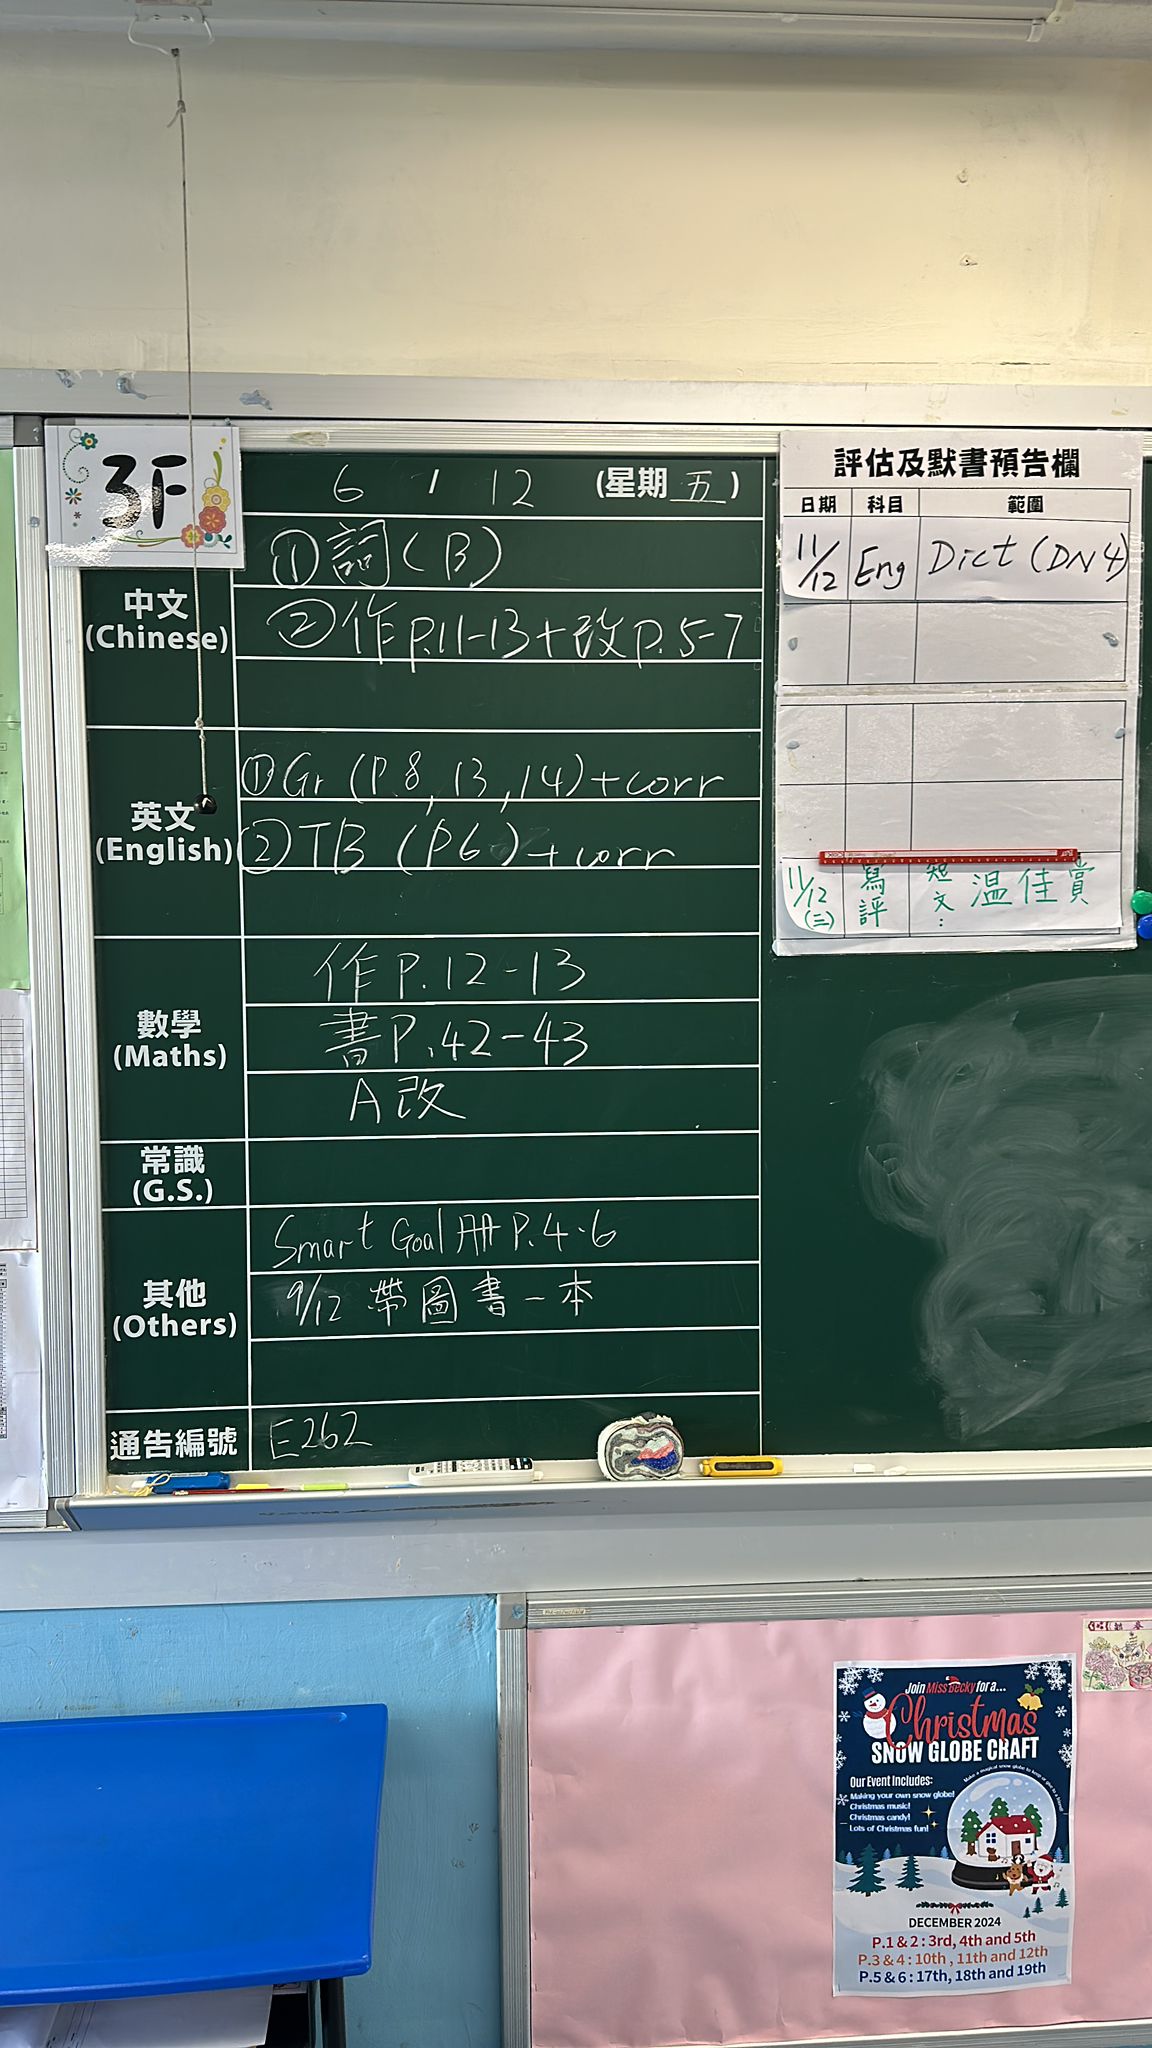 3F
6 / 12 (星期 五)
中文
(Chinese)
①詞(B)
②作p.11-13+改p.5-7
英文
(English)
①Gr (P.8, 13, 14)+corr
②TB (P6)+corr
數學
(Maths)
作P.12-13
書P.42-43
A改
常識
(G.S.)
其他
(Others)
Smart Goal 冊 P.4-6
9/12 帶圖書一本
通告編號
E262
評估及默書預告欄
日期 科目 範圍
11/12 Eng Dict (DN4)
11/12 (三) 寫評 短文: 温佳賞
Join Miss Becky for a...
Christmas
SNOW GLOBE CRAFT
Make a magical snow globe to keep or give to a friend!
Our Event Includes:
Making your own snow globe!
Christmas music!
Christmas candy!
Lots of Christmas fun!
DECEMBER 2024
P.1 & 2 : 3rd, 4th and 5th
P.3 & 4 : 10th , 11th and 12th
P.5 & 6 : 17th, 18th and 19th